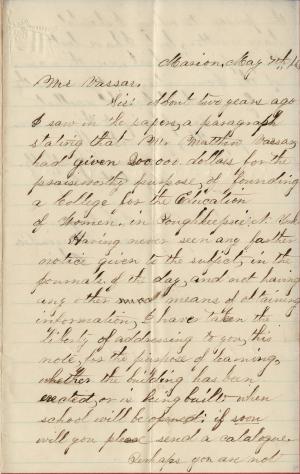 Marion, May 7th,
Mr Vassar,
Sir About two years ago
I saw in the papers, a paragraph
stating that Mr. Matthew Vassar
had given 200,000 dollars for the
praiseworthy purpose, of founding
a College for the Education
of Women, in Poughkeepsie, N.
Having never seen any farther
notice given to the subject, in the
journals of the day, and not having
any other means of obtaining
information, I have taken the
liberty of addressing to you, this
note, for the purpose of learning,
whether the building has been
erected, or is being built when
school will be opened; if soon
will you please send a catalogue.
Perhaps you are not